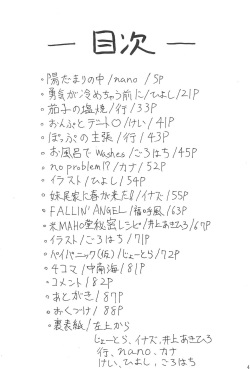 — 目次 —
・陽だまりの中/nano/5P
・勇気が冷めちゃう前に/ひよし/21P
・茄子の塩焼/行/33P
・おんぷとテント○/けい/41P
・ぽっぷの主張/行/43P
・お風呂でWashes/ごろはち/45P
・no problem!?/カナ/52P
・イラスト/ひよし/54P
・妹尾家に春が来た!!/イナズ/55P
・FALLIN' ANGEL/福の呼風/63P
・米MAHO堂秘密レシピ/井上あきひろ/67P
・イラスト/ごろはち/71P
・ペイパニック(仮)/じょーとら/72P
・4コマ/中南海/81P
・コメント/82P
・あとがき/87P
・おくづけ/88P
・裏表紙/左上から
じょーとら、イナズ、井上あきひろ
行、nano、カナ
けい、ひよし、ごろはち